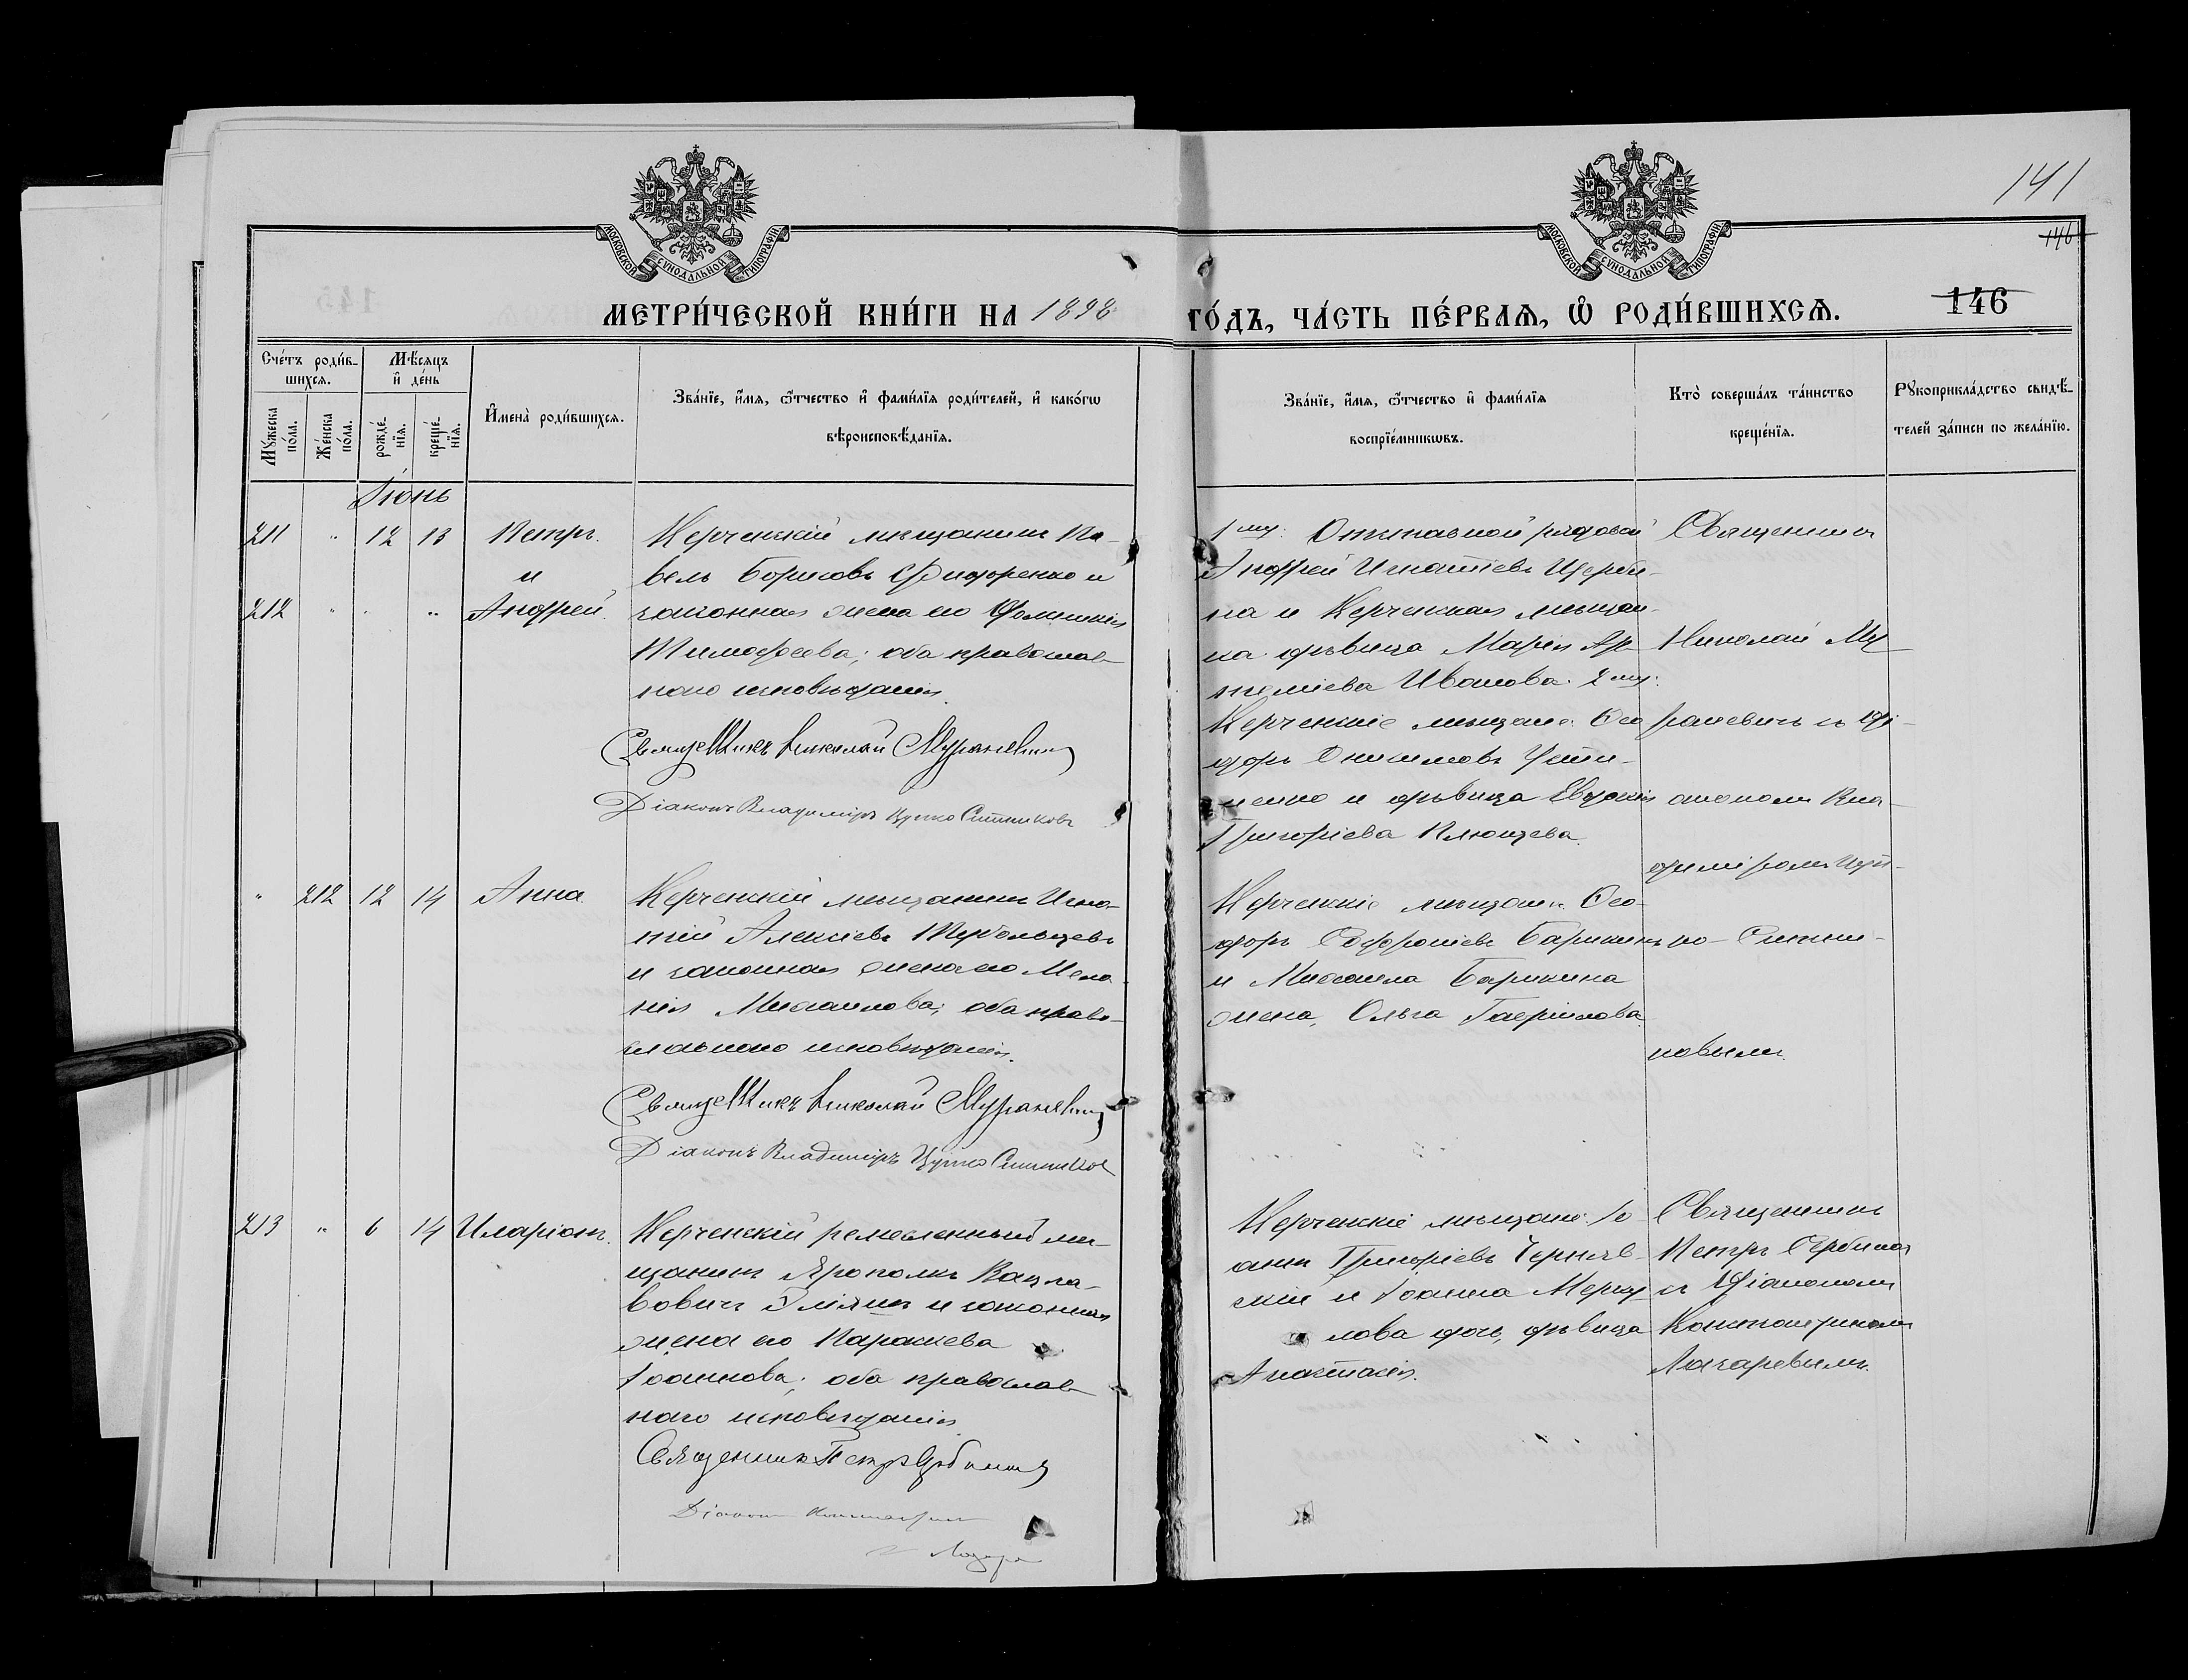 141
146
МОСКОВСКОЙ СѴНОДАЛЬНОЙ ТИПОГРАФІИ
МОСКОВСКОЙ СѴНОДАЛЬНОЙ ТИПОГРАФІИ
МЕТРИ́ЧЕСКОЙ КНИ́ГИ НА 1898
ГО́ДЪ, ЧА́СТЬ ПЕ́РВАѦ, Ѽ РОДИ́ВШИХСѦ.
146
Сче́тъ роди́в-
шихсѧ.
Мѣ́сѧцъ
и҆ де́нь
Мꙋ́жеска
по́ла.
Же́нска
по́ла.
рожде́-
нїѧ.
креще́-
нїѧ.
И҆мена̀ роди́вшихсѧ.
Зва́нїе, и҆́мѧ, ѻ҆́тчество и҆ фами́лїѧ роди́телей, и҆ како́гѡ
вѣроисповѣ́данїѧ.
Зва́нїе, и҆́мѧ, ѻ҆́тчество и҆ фами́лїѧ
воспрїе́мникѡвъ.
Кто̀ соверша́лъ та́инство
креще́нїѧ.
Рꙋкоприкла́дство свидѣ́-
телей за́писи по жела́нїю.
Іюнь
211 " 12 13 Петръ
и
212 " " " Андрей
Керченскій мѣщанинъ Па-
велъ Борисовъ Фидоренко и
законная жена его
Тимофеева; оба православ-
наго исповѣданія.
Священникъ Николай Мураневичъ
Діаконъ Владиміръ Цупко Ситниковъ
1му: Отставной рядовой
Андрей Игнатіевъ Щерби-
на и Керченская мѣщан-
ка дѣвица Марія Ар-
темиева Иванова. 2му:
Керченскіе мѣщане: Ѳео
доръ Онисимовъ Усти-
менко и дѣвица Евдокія
Григоріева Плющева.
Священникъ
Николай Му
раневичъ съ Ді-
акономъ Вла-
диміромъ Цуп-
ко-Ситни-
ковымъ.
" 212 12 14 Анна
Керченскій мѣщанинъ Игна-
тій Алексіевъ
и законная жена его Мела-
нія Михаилова; оба право-
славнаго исповѣданія.
Священникъ Николай Мураневичъ
Діаконъ Владиміръ Цупко Ситниковъ
Керченскіе мѣщане: Ѳео-
доръ Софроніевъ Барыкинъ
и Михаила Барыкина
жена, Ольга Гавріилова.
213 " 6 14 Иларіонъ.
Керченскій ремесленный мѣ-
щанинъ Ярополкъ Вацла-
вовичъ и законная
жена его Параскева
Іоаннова; оба православ-
наго исповѣданія.
Священникъ Петръ Сербиновъ
Діаконъ Константинъ
Лазарев
Керченскіе мѣщане: Іо-
аннъ Григоріевъ Черняв-
скій и Іоанна Мерку-
лова дочь, дѣвица
Анастасія.
Священникъ
Петръ Сербиновъ
съ Діакономъ
Константиномъ
Лазаревымъ.